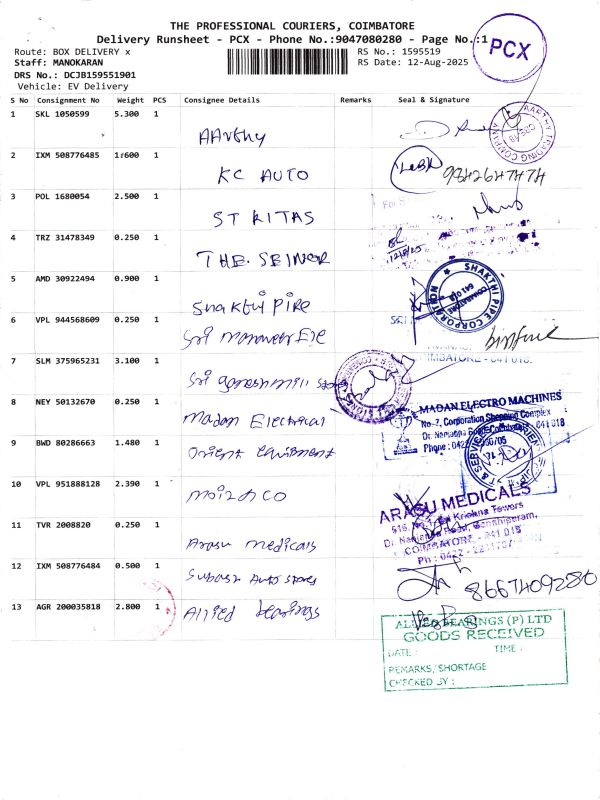 THE PROFESSIONAL COURIERS, COIMBATORE
Delivery Runsheet - PCX - Phone No.:9047080280 - Page No.:1
PCX
Route: BOX DELIVERY x
RS No.: 1595519
Staff: MANOKARAN
RS Date: 12-Aug-2025
DRS No.: DCJB159551901
Vehicle: EV Delivery
S No Consignment No Weight PCS Consignee Details Remarks Seal & Signature
1 SKL 1050599 5.300 1
AARthy
AARTHY TRADING COMPANY
2 IXM 508776485 1.600 1
KC AUTO
9842647474
3 POL 1680054 2.500 1
ST RITAS
For S
4 TRZ 31478349 0.250 1
THE. SEINOR
12/8/25
5 AMD 30922494 0.900 1
Shakthi Pipe
SHAKTHI PIPE CORPORATION
COIMBATORE
641 018
6 VPL 944568609 0.250 1
Sri
SRI
COIMBATORE - 641 018.
7 SLM 375965231 3.100 1
Sri ganesh mill stores
8 NEY 50132670 0.250 1
Madan Electrical
MADAN ELECTRO MACHINES
No-7, Corporation Shopping Complex
Dr. Nanjappa Road, Coimbatore - 641 018
Phone : 0422
9 BWD 80286663 1.480 1
Orient Equipment
10 VPL 951888128 2.390 1
11 TVR 2008820 0.250 1
Arasu medicals
ARASU MEDICALS
Krishna Towers
Dr. Nanjappa Road, Gandhipuram,
COIMBATORE - 641 018
Ph : 0422 -
12 IXM 508776484 0.500 1
Subash Auto stores
8667409280
13 AGR 200035818 2.800 1
Allied bearings
ALLIED BEARINGS (P) LTD
GOODS RECEIVED
DATE : TIME :
REMARKS/SHORTAGE
CHECKED BY :